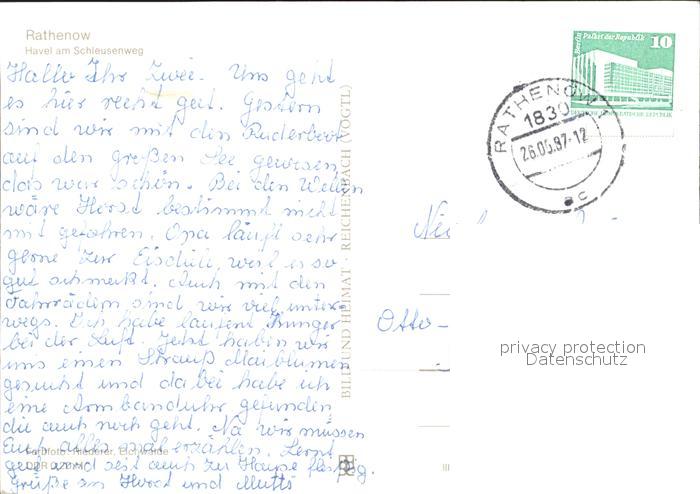 Rathenow
Havel am Schleusenweg
Hallo Ihr Zwei. Uns geht
es hier recht gut. Gestern
sind wir mit den Ruderboot
auf den großen See gewesen,
das war schön. Bei den Wellen
wäre Horst bestimmt nicht
mit gefahren. Opa läuft sehr
gerne zur Eisdiele, weil es so
gut schmeckt. Auch mit den
Fahrrädern sind wir viel unter-
wegs. Ich habe laufend Hunger
bei der Luft. Jetzt haben wir
uns einen Strauß Maiblumen
gesucht und dabei habe ich
eine Armbanduhr gefunden
die auch noch geht. Na wir müssen
Euch alles mal erzählen. Lernt
gut und seit auch zu Hause fleißig.
Grüße an Horst und Mutti
Farbfoto: Riederer, Eichwalde
DDR
BILD UND HEIMAT · REICHENBACH (VOGTL)
Berlin Palast der Republik
10
DEUTSCHE DEMOKRATISCHE REPUBLIK
RATHENOW 1
1830
26.05.87-12
ac
Otto-
privacy protection
Datenschutz
III